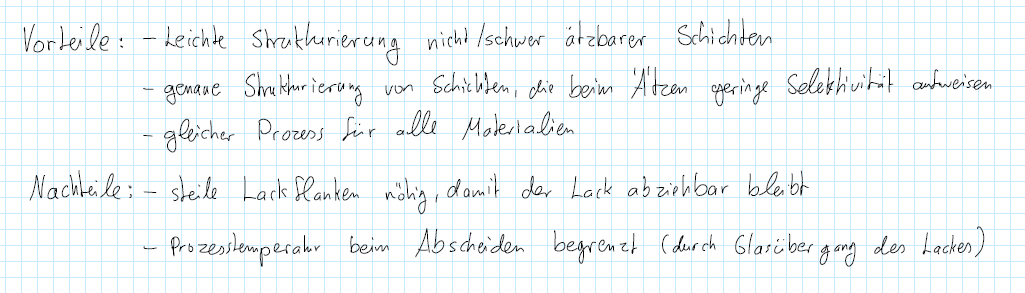 Vorteile: - Leichte Strukturierung nicht/schwer ätzbarer Schichten
- genaue Strukturierung von Schichten, die beim Ätzen geringe Selektivität aufweisen
- gleicher Prozess für alle Materialien
Nachteile: - steile Lackflanken nötig, damit der Lack abziehbar bleibt
- Prozesstemperatur beim Abscheiden begrenzt (durch Glasübergang des Lackes)